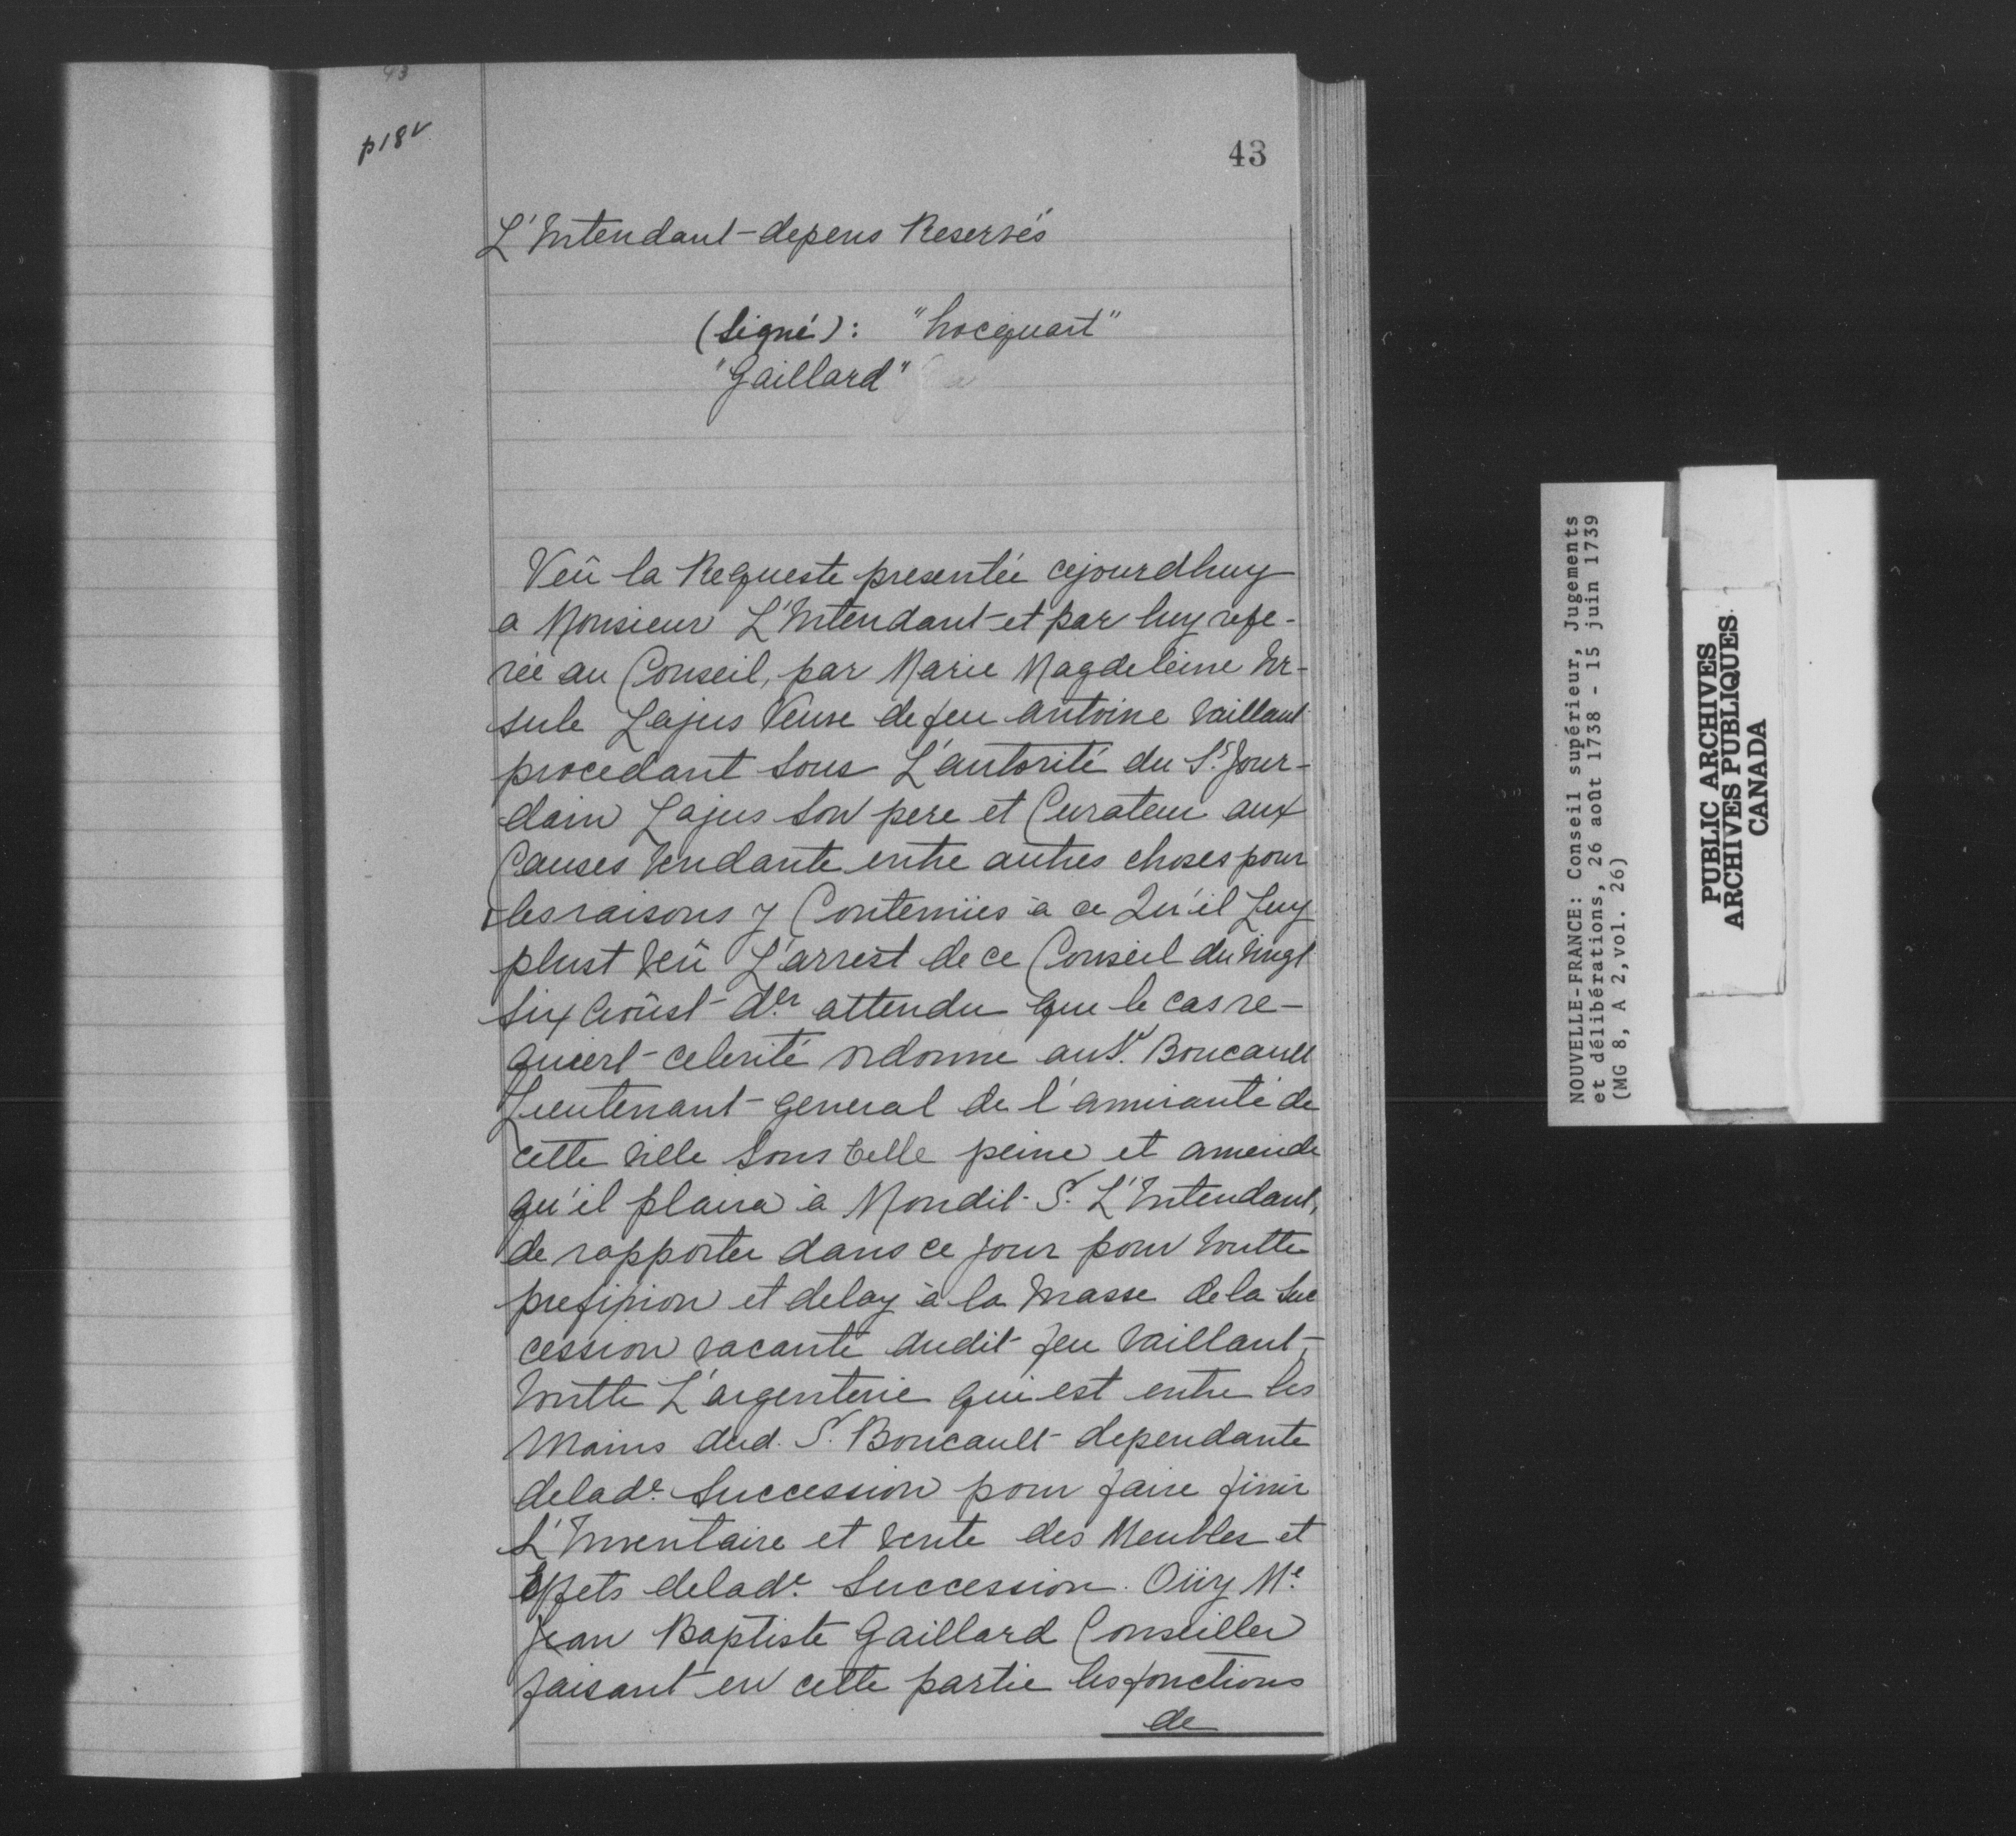 43
p 18 v
43
L'Intendant - depens Reservés
(signé) : "hocquart"
"Gaillard"
Veû la Requeste presentée cejourdhuy
a Monsieur L'Intendant et par luy refe-
rée au Conseil, par Marie Magdeleine Ur-
sule Lajus Veuve de feu antoine Vaillant
procedant sous L'autorité du Sr. Jour-
dain Lajus son pere et Curateur aux
Causes tendante entre autres choses pour
les raisons y Contenües à ce Qu'il Luy
plust Veû L'arrest de ce Conseil du Vingt
six Aoûst der. attendu que le cas re-
quiert celerité ordonne au Sr. Boucault
Lieutenant - general de l'amirauté de
cette Ville sous telle peine et amende
qu'il plaira à Mondit Sr. L'Intendant,
de rapporter dans ce jour pour toutte
prefixion et delay à la Masse de la Suc
cession vacante dudit feu Vaillant,
toutte L'argenterie qui est entre les
Mains dud. Sr. Boucault dependante
delade. Succession pour faire finir
L'Inventaire et Vente des Meubles et
Effets delade. Succession. Oüy Me.
Jean Baptiste Gaillard Conseiller
faisant en cette partie les fonctions
de
NOUVELLE-FRANCE: Conseil supérieur, Jugements
et délibérations, 26 août 1738 - 15 juin 1739
(MG 8, A 2,vol. 26)
PUBLIC ARCHIVES
ARCHIVES PUBLIQUES
CANADA